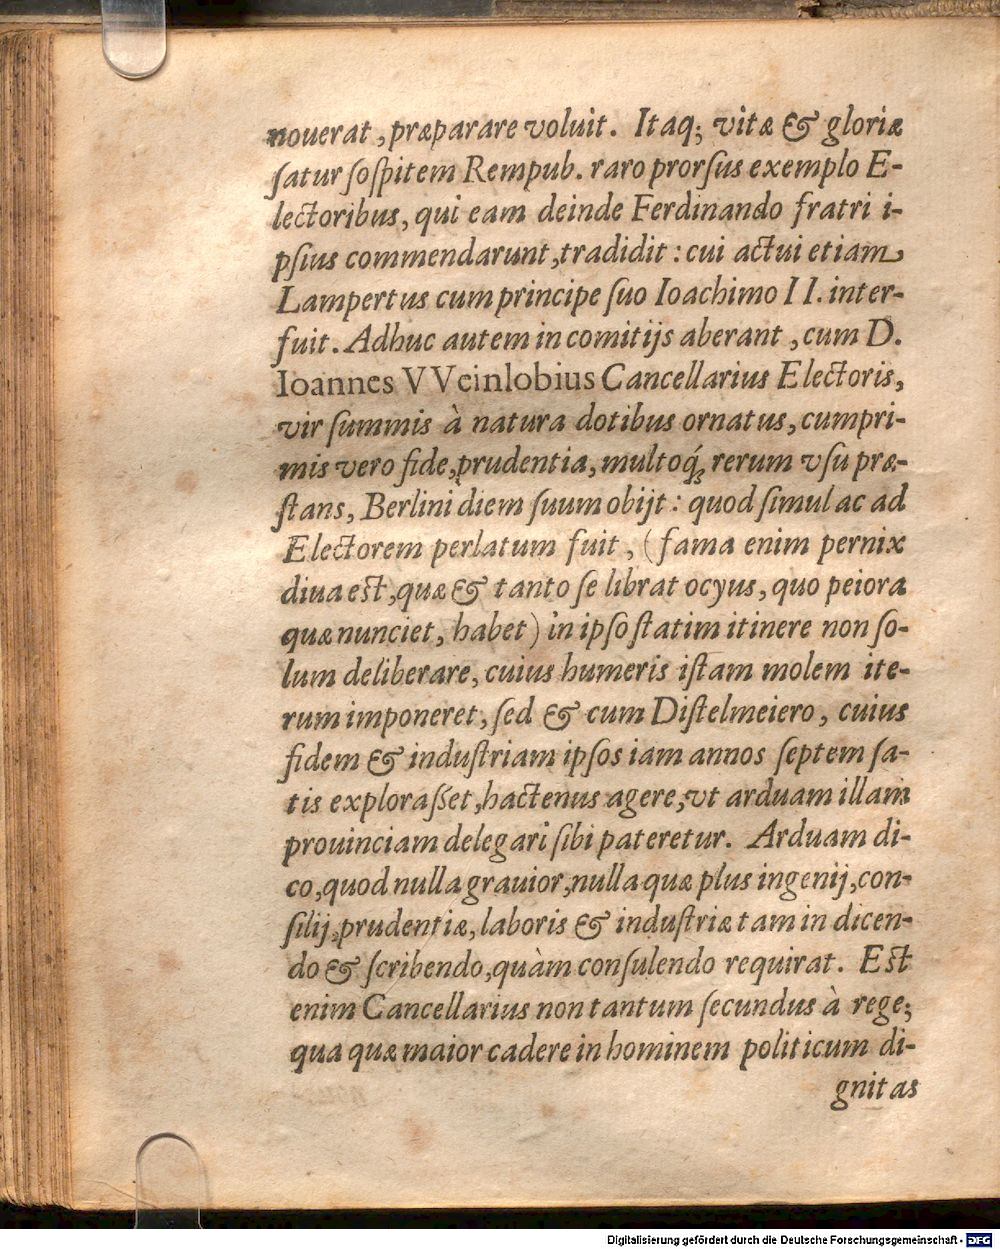 nouerat, præparare voluit. Itaq; vitæ & gloriæ
ſatur ſoſpitem Rempub. raro prorſus exemplo E-
lectoribus, qui eam deinde Ferdinando fratri i-
pſius commendarunt, tradidit: cui actui etiam
Lampertus cum principe ſuo Ioachimo II. inter-
fuit. Adhuc autem in comitijs aberant, cum D.
Ioannes VVeinlobius Cancellarius Electoris,
vir ſummis à natura dotibus ornatus, cumpri-
mis vero fide, prudentia, multoq́; rerum vſu præ-
ſtans, Berlini diem ſuum obijt: quod ſimul ac ad
Electorem perlatum fuit, (fama enim pernix
diua eſt, quæ & tanto ſe librat ocyus, quo peiora
quæ nunciet, habet) in ipſo ſtatim itinere non ſo-
lum deliberare, cuius humeris iſtam molem ite-
rum imponeret, ſed & cum Diſtelmeiero, cuius
fidem & induſtriam ipſos iam annos ſeptem ſa-
tis exploraſſet, hactenus agere, vt arduam illam
prouinciam delegari ſibi pateretur. Arduam di-
co, quod nulla grauior, nulla quæ plus ingenij, con-
ſilij, prudentiæ, laboris & induſtriæ tam in dicen-
do & ſcribendo, quàm conſulendo requirat. Eſt
enim Cancellarius non tantum ſecundus à rege;
qua quæ maior cadere in hominem politicum di-
gnitas
Digitalisierung gefördert durch die Deutsche Forschungsgemeinschaft - DFG